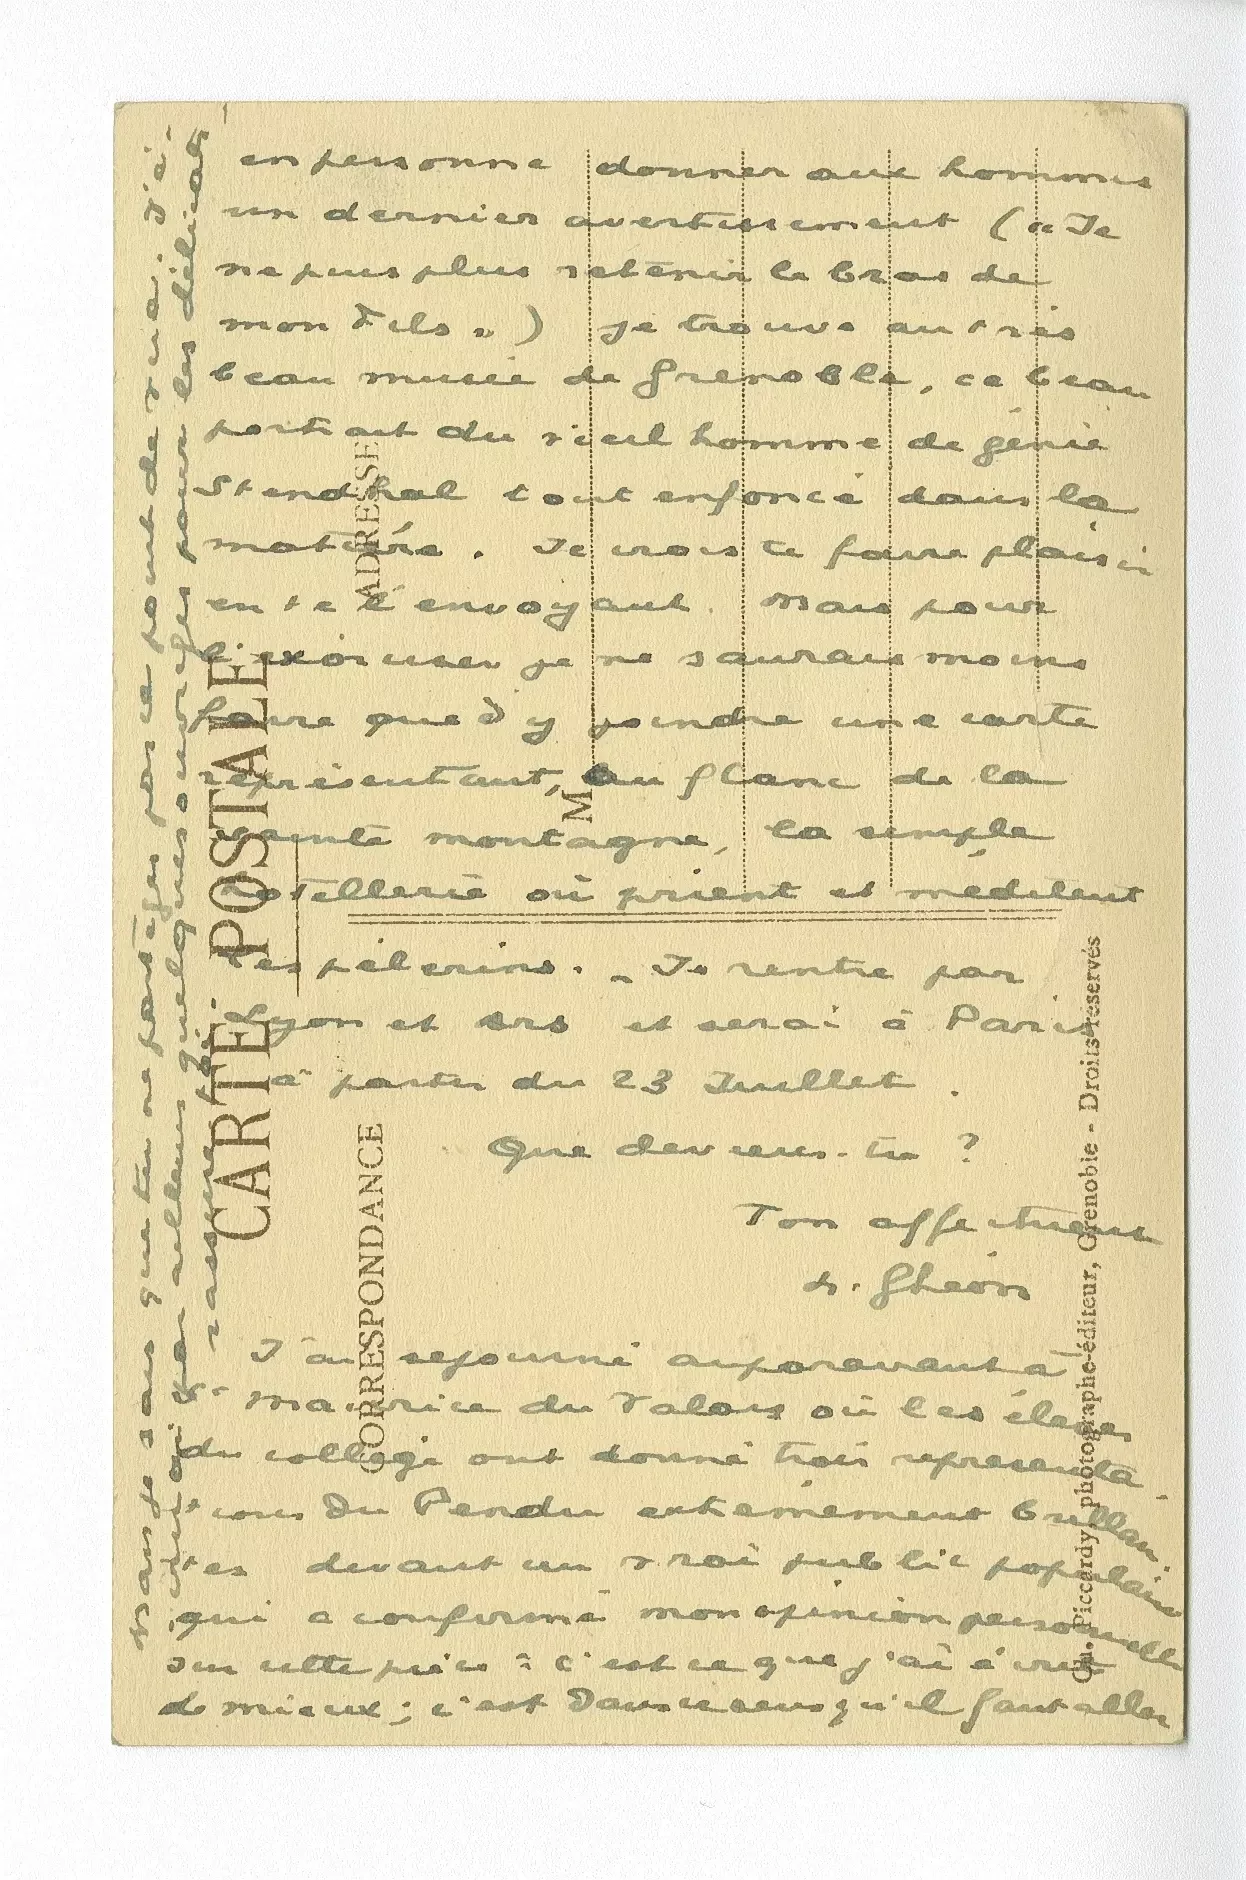 en personne donner aux hommes
un dernier avertissement (« Je
ne puis plus retenir le bras de
mon Fils ») je trouve au très
beau musée de Grenoble, ce beau
portrait du vieil homme de génie
Stendhal tout enfoncé dans la
matière. Je crois te faire plaisir
en te l'envoyant. Mais pour
l'exorciser je ne saurais moins
faire que d'y joindre une carte
représentant, au flanc de la
sainte montagne, la simple
hotellerie où prient et méditent
les pélerins. _ Je rentre par
Lyon et Ars et serai à Paris
à partir du 23 Juillet.
Que deviens-tu ?
Ton affectueux
h. Ghéon
J'ai séjourné auparavant à
St Maurice du Valais où les élèves
du collège ont donné trois représenta
tions du Pendu extrêmement brillan-
tes devant un vrai public populaire
qui a confirmé mon opinion personnelle
sur cette pièce : c'est ce que j'ai écrit
de mieux ; c'est dans ce sens qu'il faut aller
Mais je sais que tu ne partages pas ce point de vue. J'é-
crirai par ailleurs quelques ouvrages pour les délicats
rassure-toi.
CARTE POSTALE
CORRESPONDANCE
ADRESSE
M
Ch. Piccardy, photographe-éditeur, Grenoble - Droits réservés